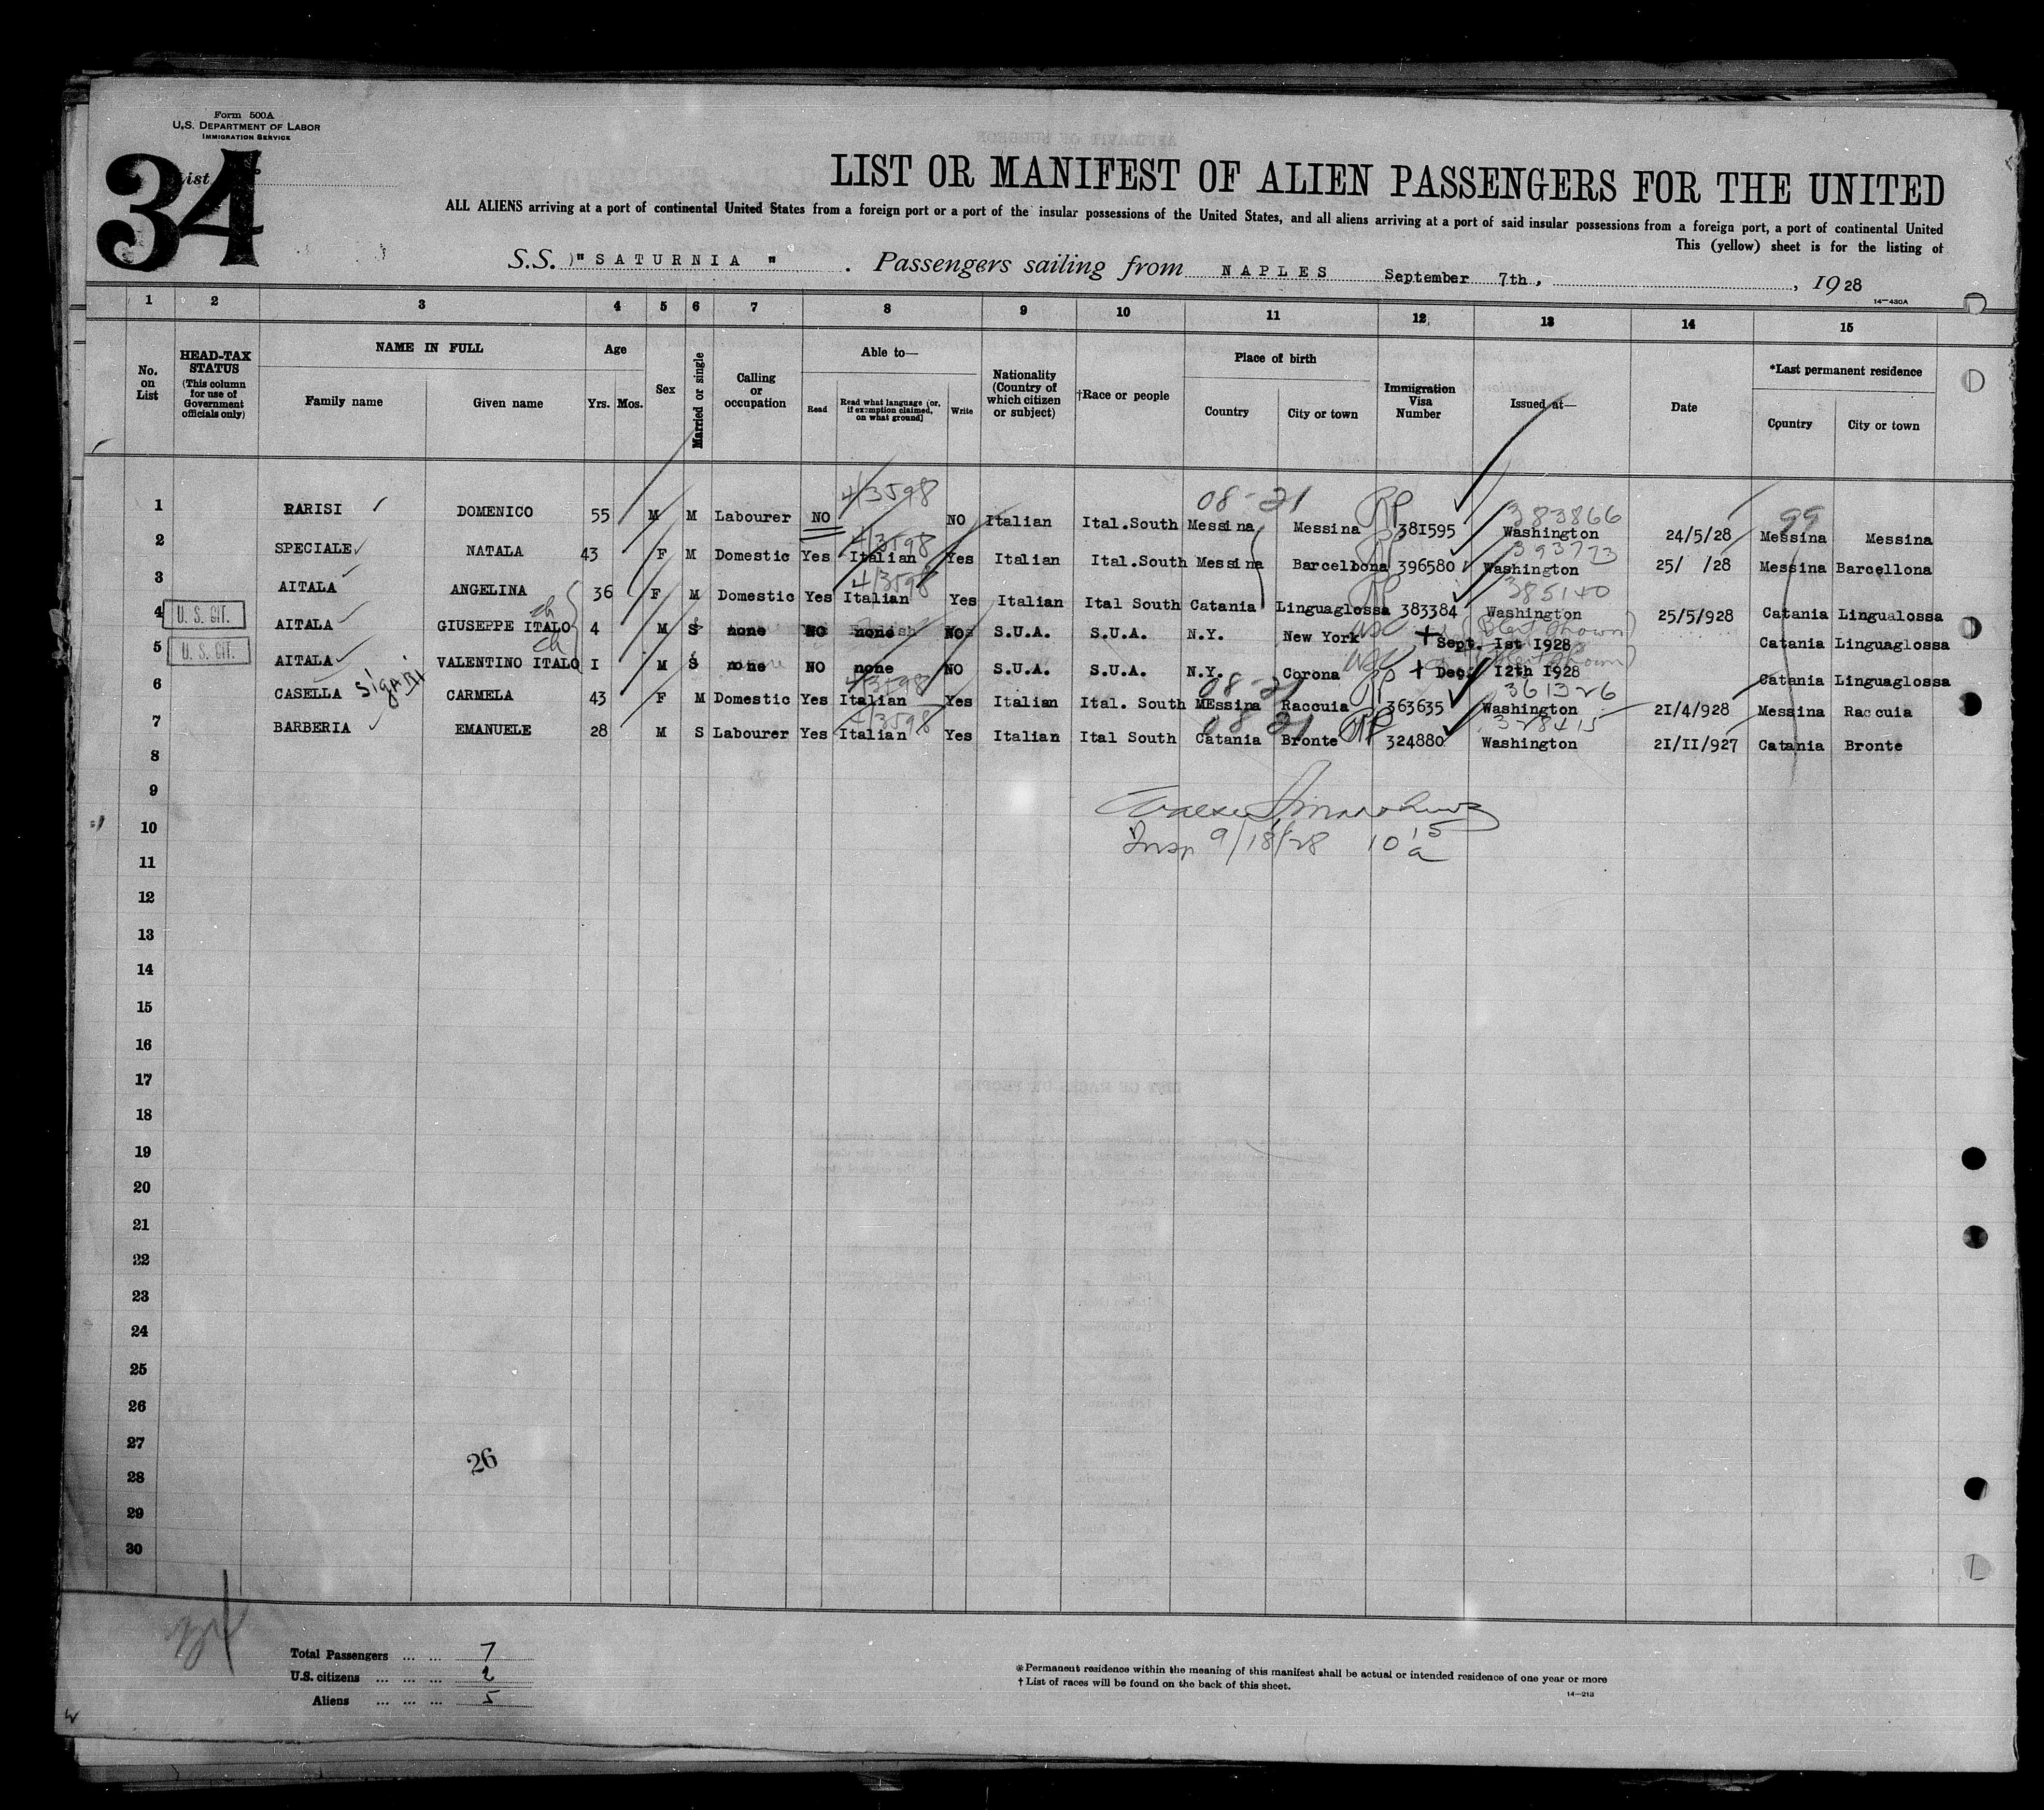 Form 500A
U.S. DEPARTMENT OF LABOR
IMMIGRATION SERVICE
List
34
LIST OR MANIFEST OF ALIEN PASSENGERS FOR THE UNITED
ALL ALIENS arriving at a port of continental United States from a foreign port or a port of the insular possessions of the United States, and all aliens arriving at a port of said insular possessions from a foreign port, a port of continental United
This (yellow) sheet is for the listing of
S.S. "SATURNIA" Passengers sailing from NAPLES September 7th, , 1928
14-430A
1 2 3 4 5 6 7 8 9 10 11 12 13 14 15
No. on List
HEAD-TAX STATUS (This column for use of Government officials only)
NAME IN FULL
Family name Given name
Age
Yrs. Mos.
Sex
Married or single
Calling or occupation
Able to—
Read Read what language [or, if exemption claimed, on what ground] Write
Nationality (Country of which citizen or subject)
†Race or people
Place of birth
Country City or town
Immigration Visa Number
Issued at—
Date
*Last permanent residence
Country City or town
413598 08-21 RP 383866 99
1 PARISI DOMENICO 55 M M Labourer NO NO Italian Ital.South Messina Messina 381595 Washington 24/5/28 Messina Messina
413598 RP 393773
2 SPECIALE NATALA 43 F M Domestic Yes Italian Yes Italian Ital.South Messina Barcellona 396580 Washington 25/ /28 Messina Barcellona
413598 RP 385140
3 AITALA ANGELINA 36 F M Domestic Yes Italian Yes Italian Ital South Catania Linguaglossa 383384 Washington 25/5/928 Catania Lingualossa
4 U. S. CIT. AITALA GIUSEPPE ITALO ch 4 M S none NO none NO S.U.A. S.U.A. N.Y. New York USC Sept. 1st 1928 Catania Linguaglossa
5 U. S. CIT. AITALA VALENTINO ITALO ch I M S none NO none NO S.U.A. S.U.A. N.Y. Corona USC Dec. 12th 1928 Catania Linguaglossa
413598 08-21 RP 361326
6 CASELLA SigARi CARMELA 43 F M Domestic Yes Italian Yes Italian Ital. South MEssina Raccuia 363635 Washington 21/4/928 Messina Raccuia
413598 08-21 RP 328415
7 BARBERIA EMANUELE 28 M S Labourer Yes Italian Yes Italian Ital South Catania Bronte 324880 Washington 21/II/927 Catania Bronte
8
9
10
Insp 9/18/28 10 15 a
11
12
13
14
15
16
17
18
19
20
21
22
23
24
25
26
27
26
28
29
30
Total Passengers ... ... 7
U.S. citizens ... ... ... 2
Aliens ... ... ... 5
*Permanent residence within the meaning of this manifest shall be actual or intended residence of one year or more
†List of races will be found on the back of this sheet.
14-213